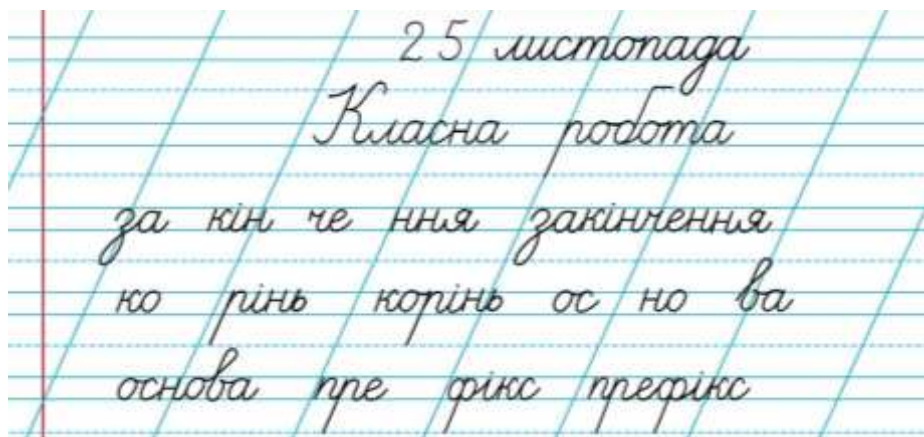 25 листопада
Класна робота
за кін че ння закінчення
ко рінь корінь ос но ва
основа пре фікс префікс